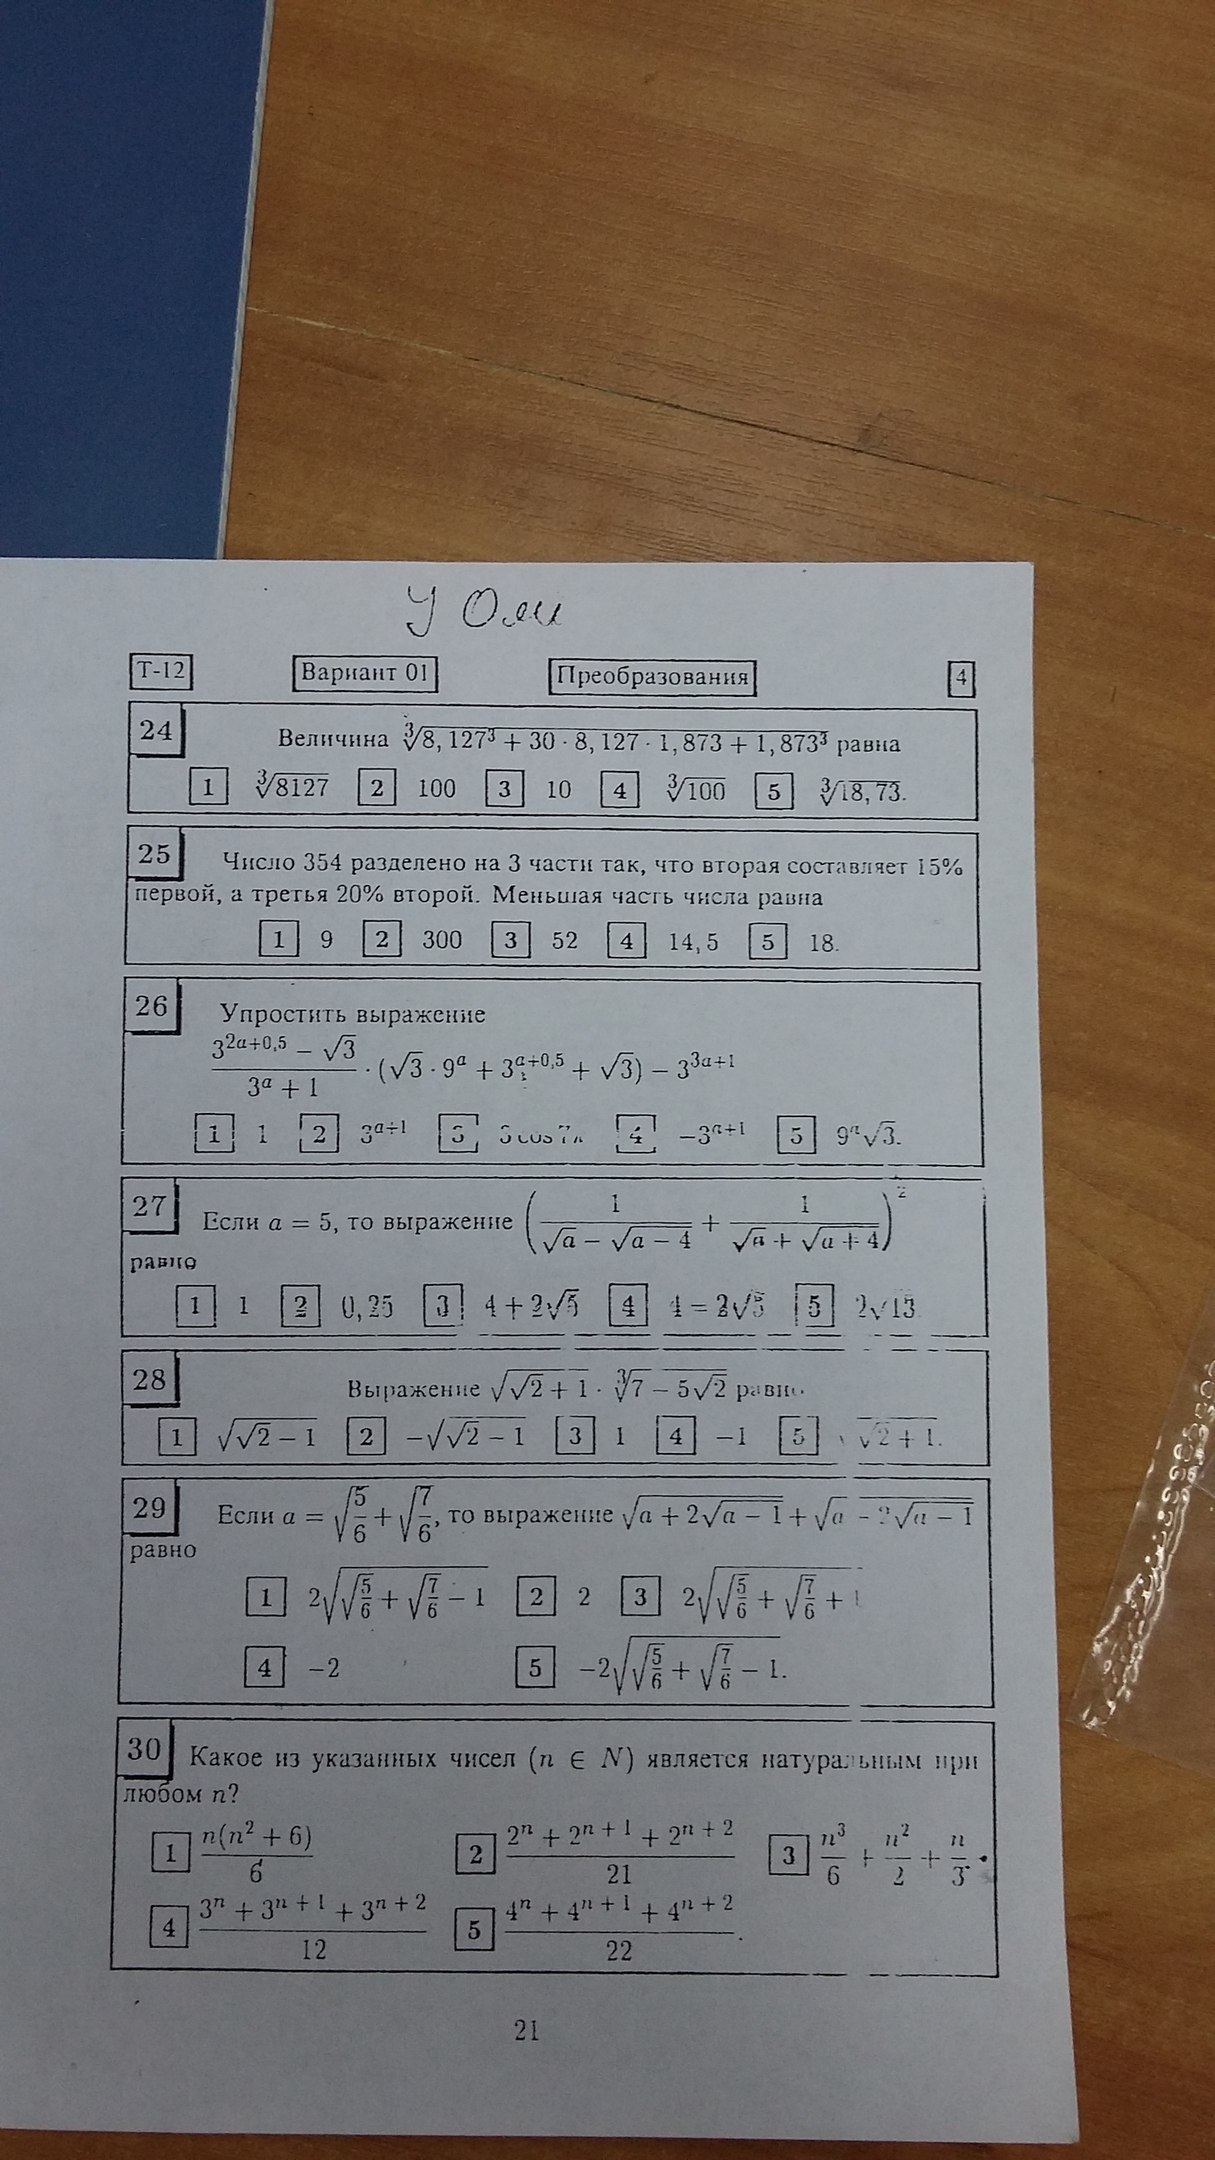 У Оли
Т-12 Вариант 01 Преобразования 4
24 Величина ∛(8,127³ + 30 · 8,127 · 1,873 + 1,873³) равна
1 ∛8127 2 100 3 10 4 ∛100 5 ∛18,73.
25 Число 354 разделено на 3 части так, что вторая составляет 15%
первой, а третья 20% второй. Меньшая часть числа равна
1 9 2 300 3 52 4 14,5 5 18.
26 Упростить выражение
(3^(2a+0,5) − √3)/(3^a + 1) · (√3 · 9^a + 3^(a+0,5) + √3) − 3^(3a+1)
1 1 2 3^(a+1) 3 3 cos 7π 4 −3^(a+1) 5 9^a√3.
27 Если a = 5, то выражение (1/(√a − √(a − 4)) + 1/(√a + √(a + 4)))²
равно
1 1 2 0,25 3 4 + 2√5 4 4 = 2√5 5 2√13
28 Выражение √(√2 + 1) · ∛(7 − 5√2) равно
1 √(√2 − 1) 2 −√(√2 − 1) 3 1 4 −1 5 √(√2 + 1).
29 Если a = √(5/6) + √(7/6), то выражение √(a + 2√(a − 1)) + √(a − 2√(a − 1))
равно
1 2√(√(5/6) + √(7/6) − 1) 2 2 3 2√(√(5/6) + √(7/6) + 1)
4 −2 5 −2√(√(5/6) + √(7/6) − 1).
30 Какое из указанных чисел (n ∈ N) является натуральным при
любом n?
1 n(n² + 6)/6 2 (2^n + 2^(n+1) + 2^(n+2))/21 3 n³/6 + n²/2 + n/3
4 (3^n + 3^(n+1) + 3^(n+2))/12 5 (4^n + 4^(n+1) + 4^(n+2))/22.
21